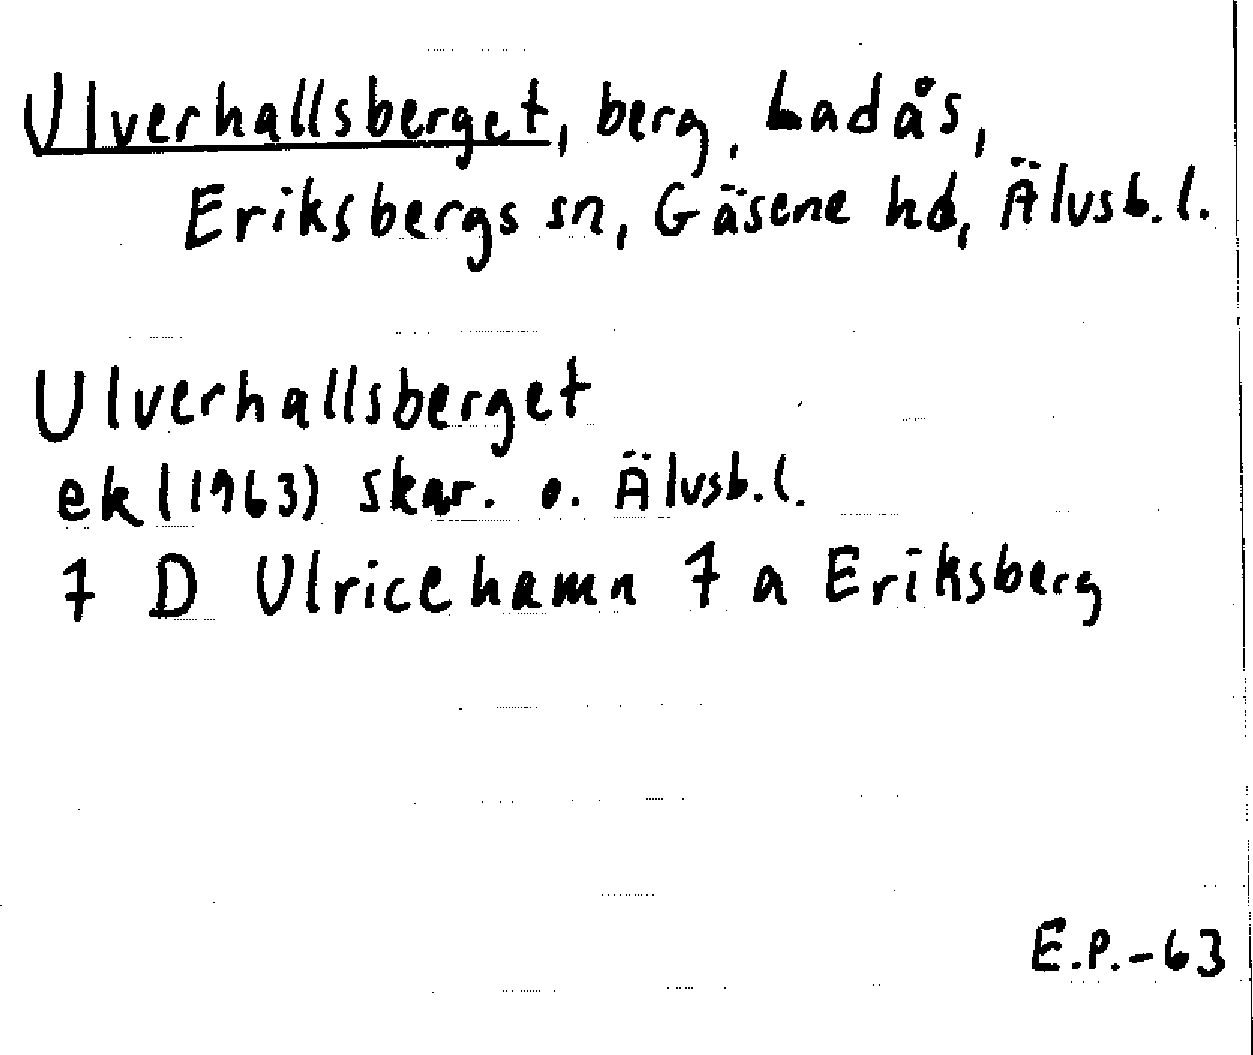 Ulverhallsberget, berg, Ladås,
Eriksbergs sn, Gäsene hd, Älvsb. l.
Ulverhallsberget
ek (1963) Skar. o. Älvsb. l.
7 D Ulricehamn 7 a Eriksberg
E.P.-63